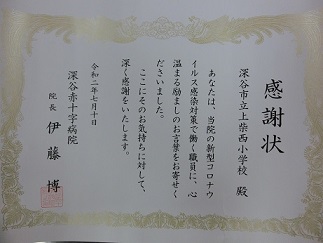 感謝状
深谷市立上柴西小学校 殿
あなたは、当院の新型コロナウ
イルス感染対策で働く職員に、心
温まる励ましのお言葉をお寄せく
ださいました。
ここにそのお気持ちに対して、
深く感謝をいたします。
令和二年七月十日
深谷赤十字病院
院長 伊藤 博